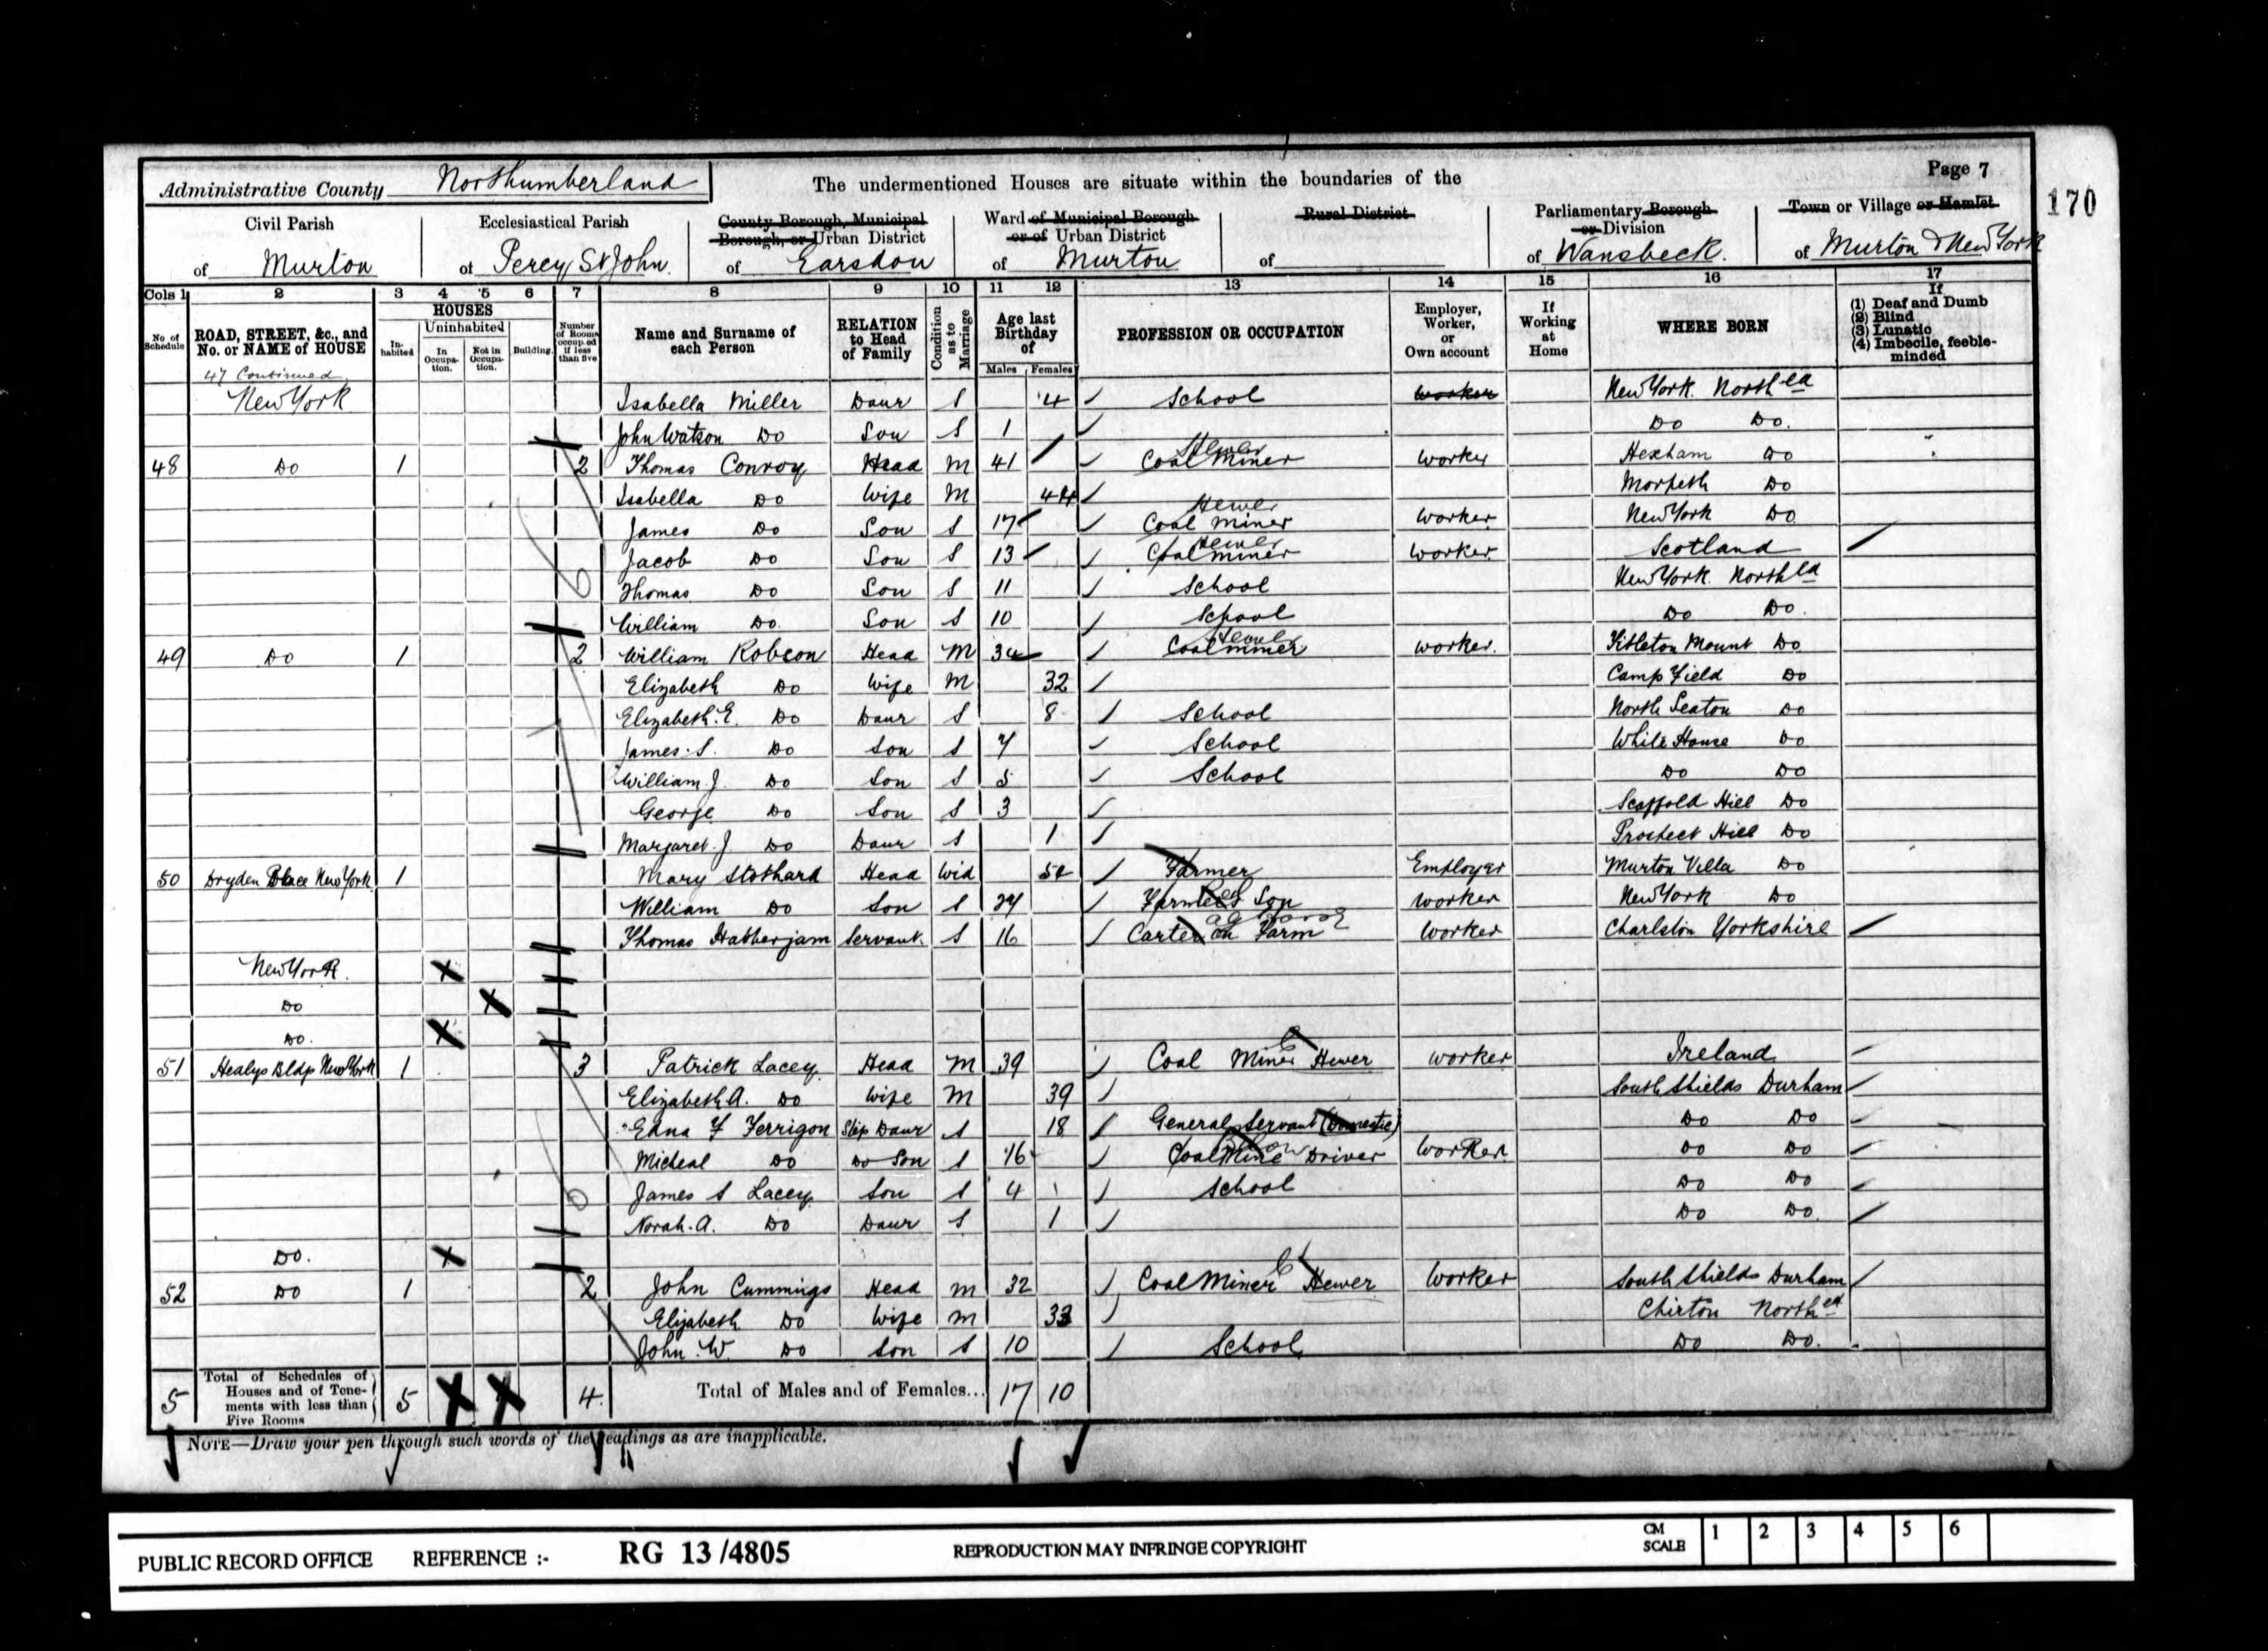 Page 7
170
Administrative County Northumberland
The undermentioned Houses are situate within the boundaries of the
Civil Parish of Murton
Ecclesiastical Parish of Percy St John
County Borough, Municipal Borough, or Urban District of Earsdon
Ward of Municipal Borough or of Urban District of Murton
Rural District of
Parliamentary Borough or Division of Wansbeck.
Town or Village or Hamlet of Murton & New York
Cols 1 2 3 4 5 6 7 8 9 10 11 12 13 14 15 16 17
No of Schedule
ROAD, STREET, &c., and No. or NAME of HOUSE
HOUSES
Inhabited
Uninhabited
In Occupation.
Not in Occupation.
Building
Number of Rooms occupied if less than five
Name and Surname of each Person
RELATION to Head of Family
Condition as to Marriage
Age last Birthday of
Males Females
PROFESSION OR OCCUPATION
Employer, Worker, or Own account
If Working at Home
WHERE BORN
If
(1) Deaf and Dumb
(2) Blind
(3) Lunatic
(4) Imbecile, feeble-minded
47 Continued
New York Isabella Miller Daur S 4 School worker New York. North ld
John Watson Do Son S 1 Do Do.
48 Do 1 2 Thomas Conroy Head M 41 Coal Miner Hewer Worker Hexham Do
Isabella Do Wife M 44 Morpeth Do
James Do Son S 17 Coal Miner Hewer Worker New York Do
Jacob Do Son S 13 Coal Miner Hewer Worker Scotland
Thomas Do Son S 11 School New York North ld
William Do. Son S 10 School Do Do.
49 Do 1 2 William Robson Head M 34 Coal miner Hewer worker. Mount Do
Elizabeth Do Wife M 32 Camp Field Do
Elizabeth. E. Do Daur S 8 School North Seaton Do
James. S. Do Son S 7 School White House Do
William J. Do Son S 5 School Do Do
George Do Son S 3 Scaffold Hill Do
Margaret. J Do Daur S 1 Prospect Hill Do
50 Dryden Place New York 1 Mary Stothard Head Wid Farmer Employer Murton Villa Do
William Do Son S Farmer's Son worker New York Do
Thomas Habberjam Servant. S 16 Carter on Farm Worker Charlston Yorkshire
New York. X
Do X
Do. X
51 Healys Bldgs New York 1 3 Patrick Lacey Head M 39 Coal Miner Hewer worker Ireland
Elizabeth A. Do Wife M 39 South Shields Durham
Edna F Ferrigon Step Daur S 18 General Servant (Domestic) Do Do
Micheal Do Do Son S 16 Coal Mine Driver Worker Do Do
James S Lacey Son S 4 School Do Do
Norah. A. Do Daur S 1 Do Do.
Do. X
52 Do 1 2 John Cummings Head M 32 Coal Miner Hewer Worker South Shields Durham
Elizabeth Do Wife M 33 Chirton North ld
John. W. Do Son S 10 School Do Do.
5 Total of Schedules of Houses and of Tenements with less than Five Rooms 5 X X 4. Total of Males and of Females... 17 10
NOTE—Draw your pen through such words of the headings as are inapplicable.
PUBLIC RECORD OFFICE REFERENCE :- RG 13 /4805 REPRODUCTION MAY INFRINGE COPYRIGHT CM SCALE 1 2 3 4 5 6